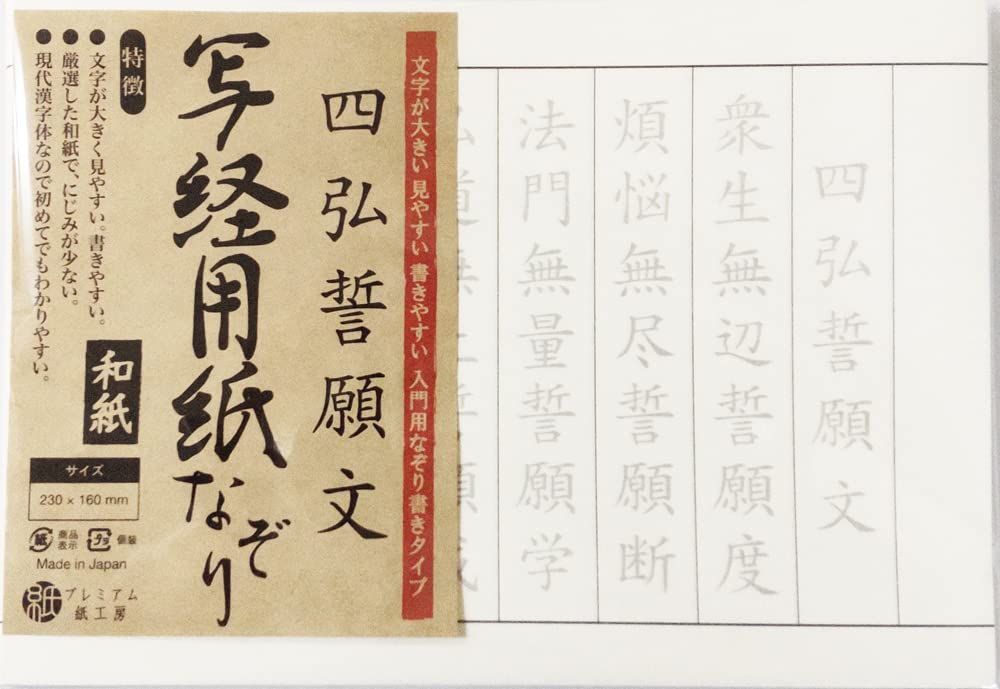 四弘誓願文
衆生無辺誓願度
煩悩無尽誓願断
法門無量誓願学
文字が大きい 見やすい 書きやすい 入門用なぞり書きタイプ
四弘誓願文
写経用紙なぞり
特徴
●文字が大きく見やすい。書きやすい。
●厳選した和紙で、にじみが少ない。
●現代漢字体なので初めてでもわかりやすい。
和紙
サイズ
230 × 160 mm
紙 商品表示 プラ 個装
Made in Japan
紙 プレミアム
紙工房